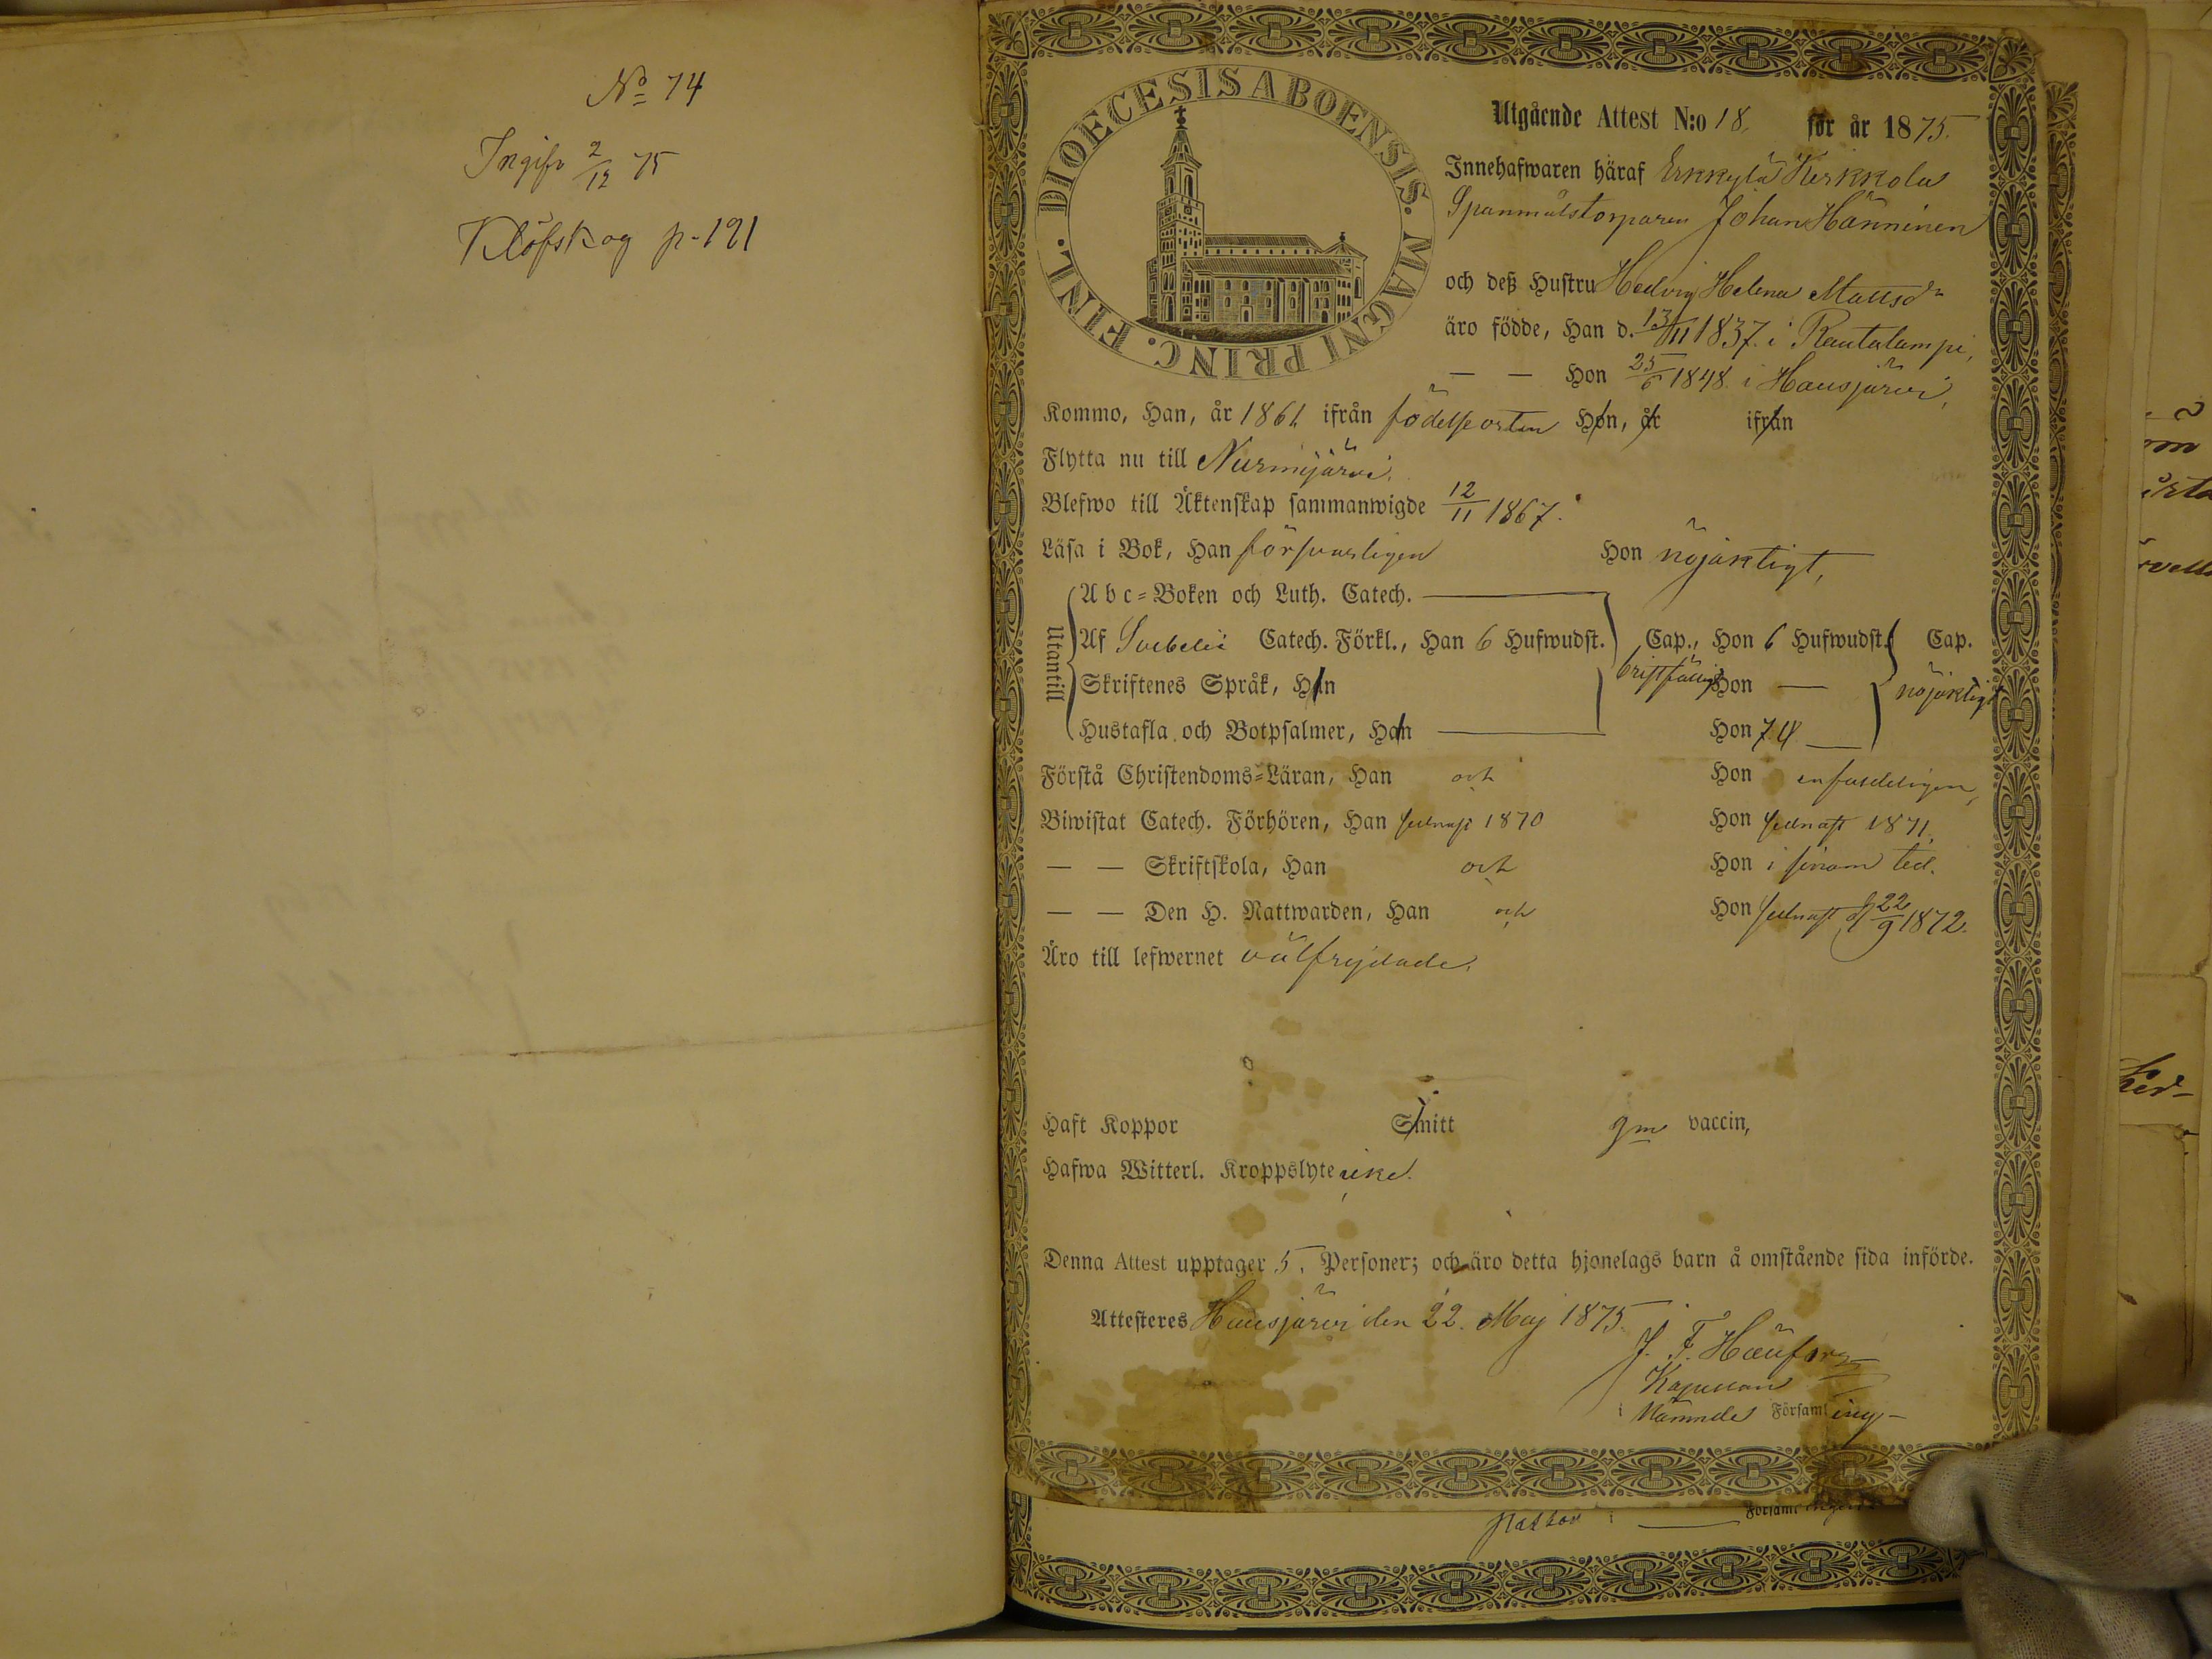 No 74
Ingifv 2/12 75
Klöfskog p. 191
DIOECESIS ABOENSIS. MAGNI PRINC. FINL.
Utgående Attest N:o 18. för år 1875.
Innehafwaren häraf Erkkylä Kerkkola
Spanmålstorparen Johan Hänninen
och deß Hustru Hedvig Helena Mattsdr
äro födde, Han d. 13/11 1837. i Rautalampi,
— — Hon 25/6 1848. i Hausjärvi,
Kommo, Han, år 1861 ifrån födelseorten Hon, år ifrån
Flytta nu till Nurmijärvi.
Blefwo till Äktenskap sammanwigde 12/11 1867.
Läsa i Bok, Han försvarligen Hon nöjaktigt,
Utantill
Abc-Boken och Luth. Catech.
Af Svebelii Catech. Förkl., Han 6 Hufwudst. Cap., Hon 6 Hufwudst. Cap.
Skriftenes Språk, Han bristfälligt Hon — nöjaktigt
Hustafla och Botpsalmer, Han — Hon 7 4 —
Förstå Christendoms-Läran, Han och Hon enfaldeligen,
Biwistat Catech. Förhören, Han sednast 1870 Hon sednast 1871.
— — Skriftskola, Han och Hon i sinom tid.
— — Den H. Nattwarden, Han och Hon sednast d 22/9 1872.
Äro till lefwernet välfrejdade.
Haft Koppor Smitt gm vaccin,
Hafwa Witterl. Kroppslyte icke.
Denna Attest upptager 5. Personer; och äro detta hjonelags barn å omstående sida införde.
Attesteres Hausjärvi den 22. Maj 1875.
J. F.
Kapellan
i Nämnde Församling
pastor i — Församl ingen